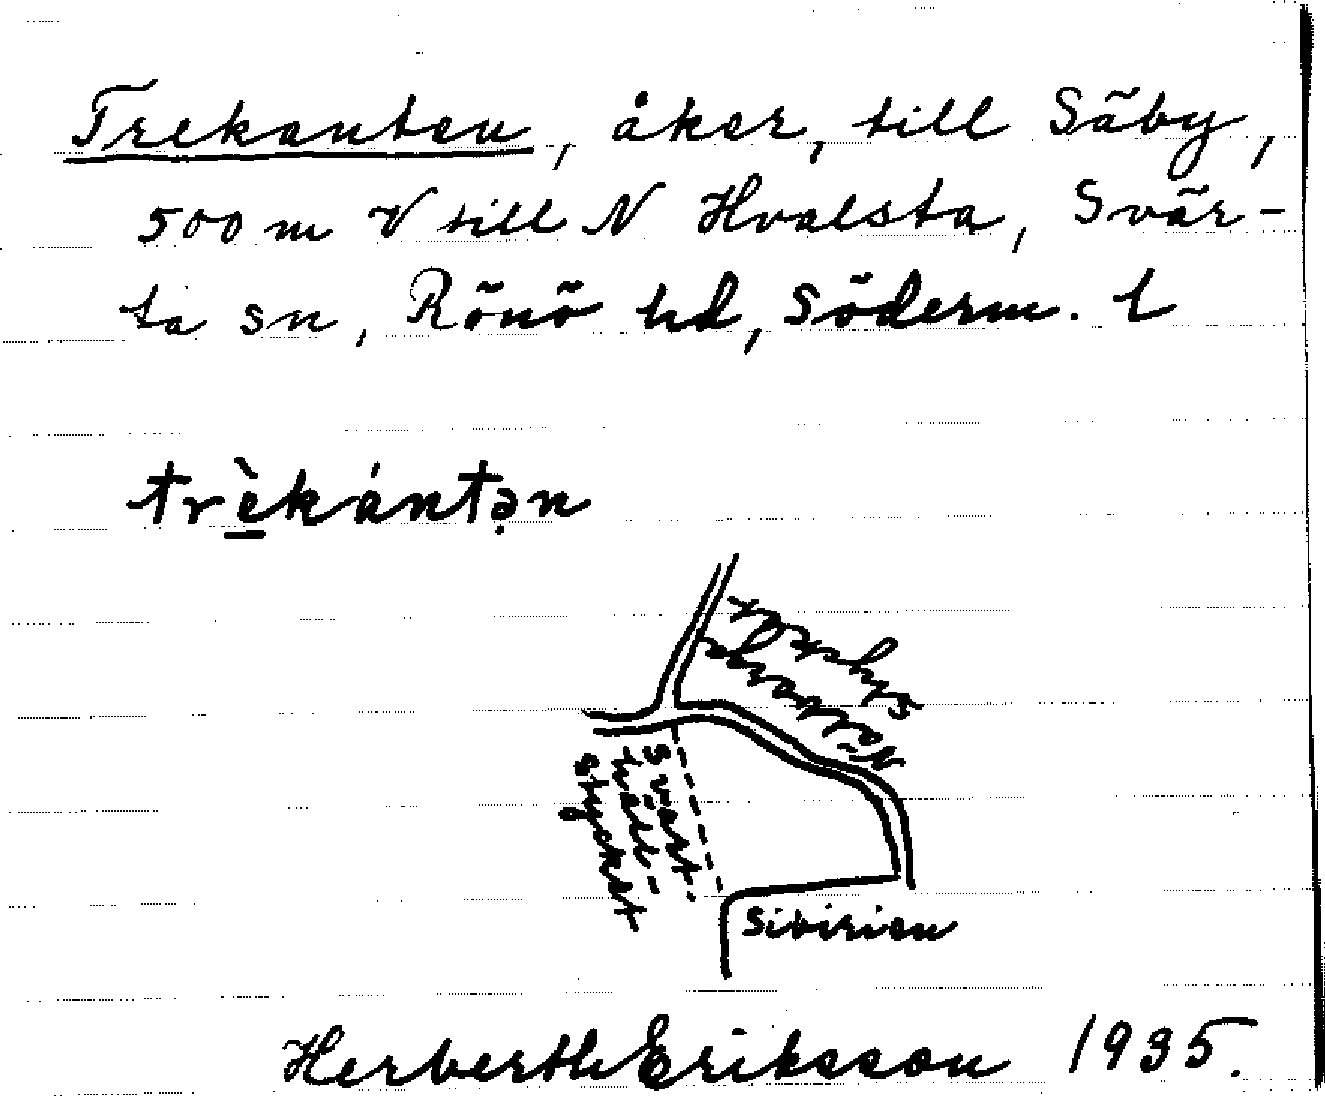 Trekanten, åker, till Säby,
500 m V till N Hvalsta, Svär-
ta sn, Rönö hd, Söderm. l
trèkántən
stycket
Svart-
Sibirien
Herberth Eriksson 1935.